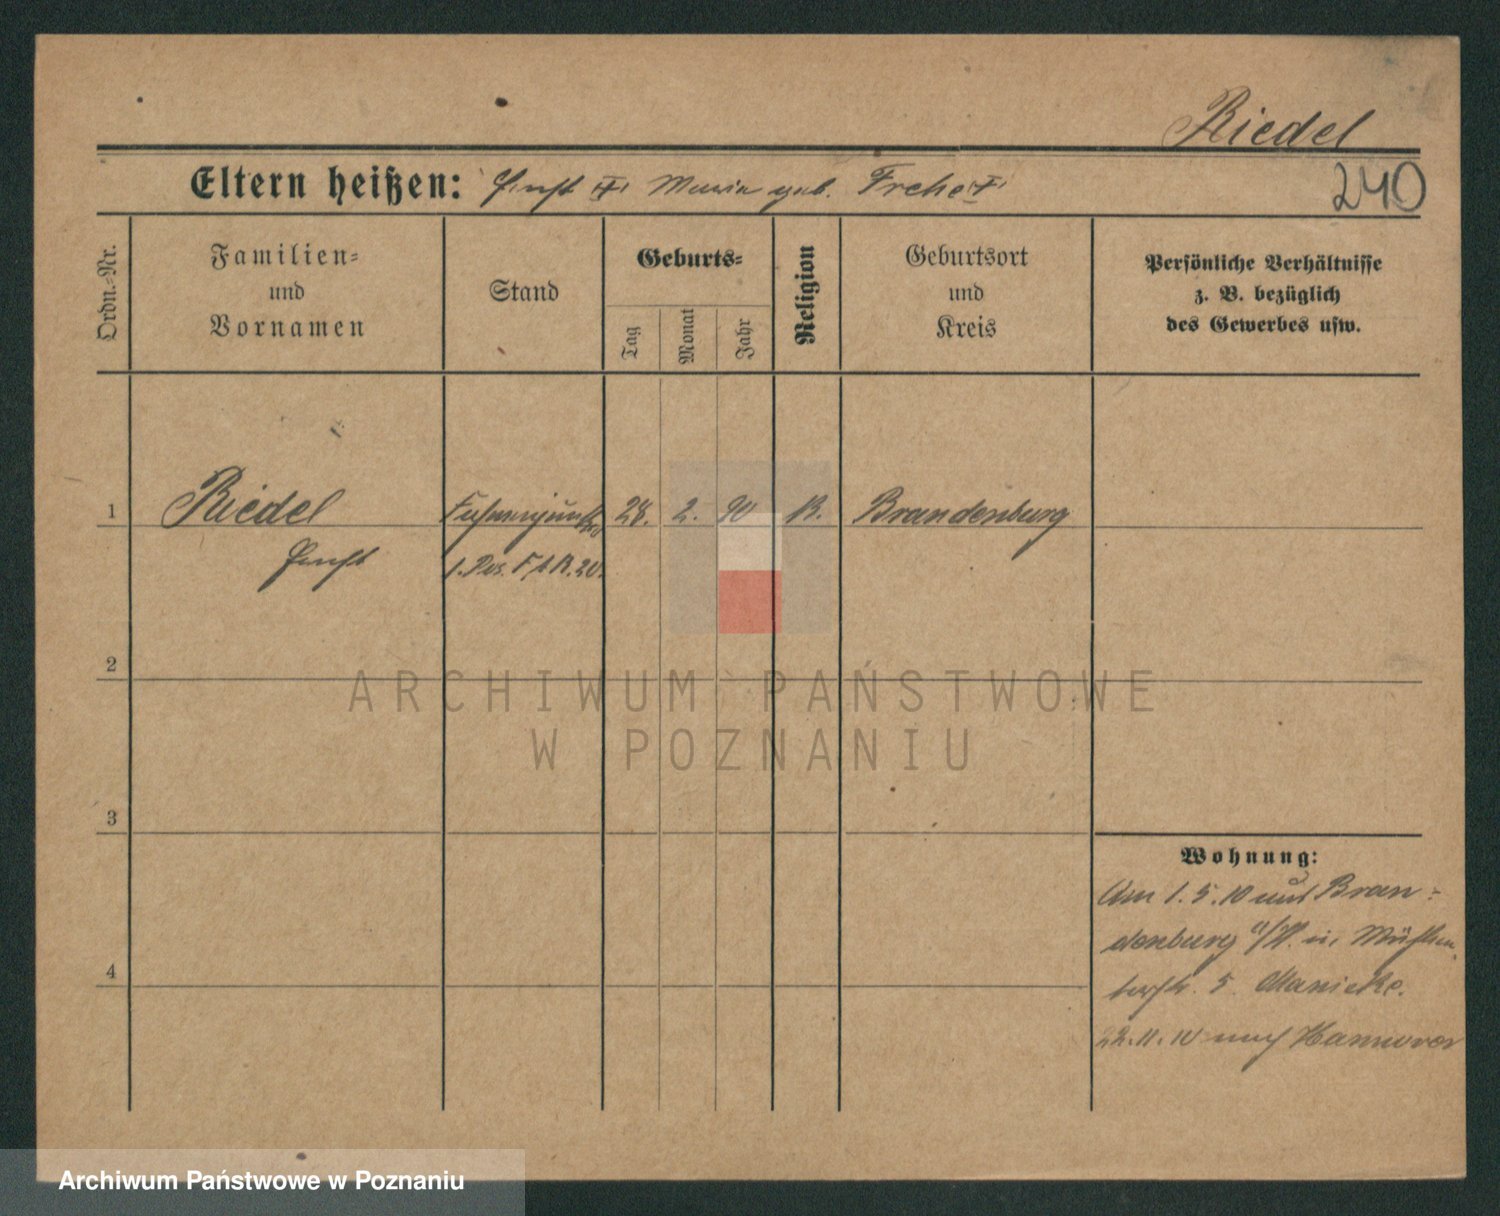 Riedel
Eltern heißen: Ernst Maria geb. Frehe
240
Ordn.-Nr.
Familien-
und
Vornamen
Stand
Geburts-
Tag
Monat
Jahr
Religion
Geburtsort
und
Kreis
Persönliche Verhältnisse
z. B. bezüglich
des Gewerbes usw.
1
Riedel
Ernst
Fahnenjunker
1. Pos. F.A.R. 20.
28.
2.
90
Brandenburg
2
ARCHIWUM PAŃSTWOWE
W POZNANIU
3
4
Wohnung:
Am 1.5.10 aus Bran-
denburg a/H. in Mühlen
torstr. 5 Manicke.
22.11.10 nach Hannover
Archiwum Państwowe w Poznaniu